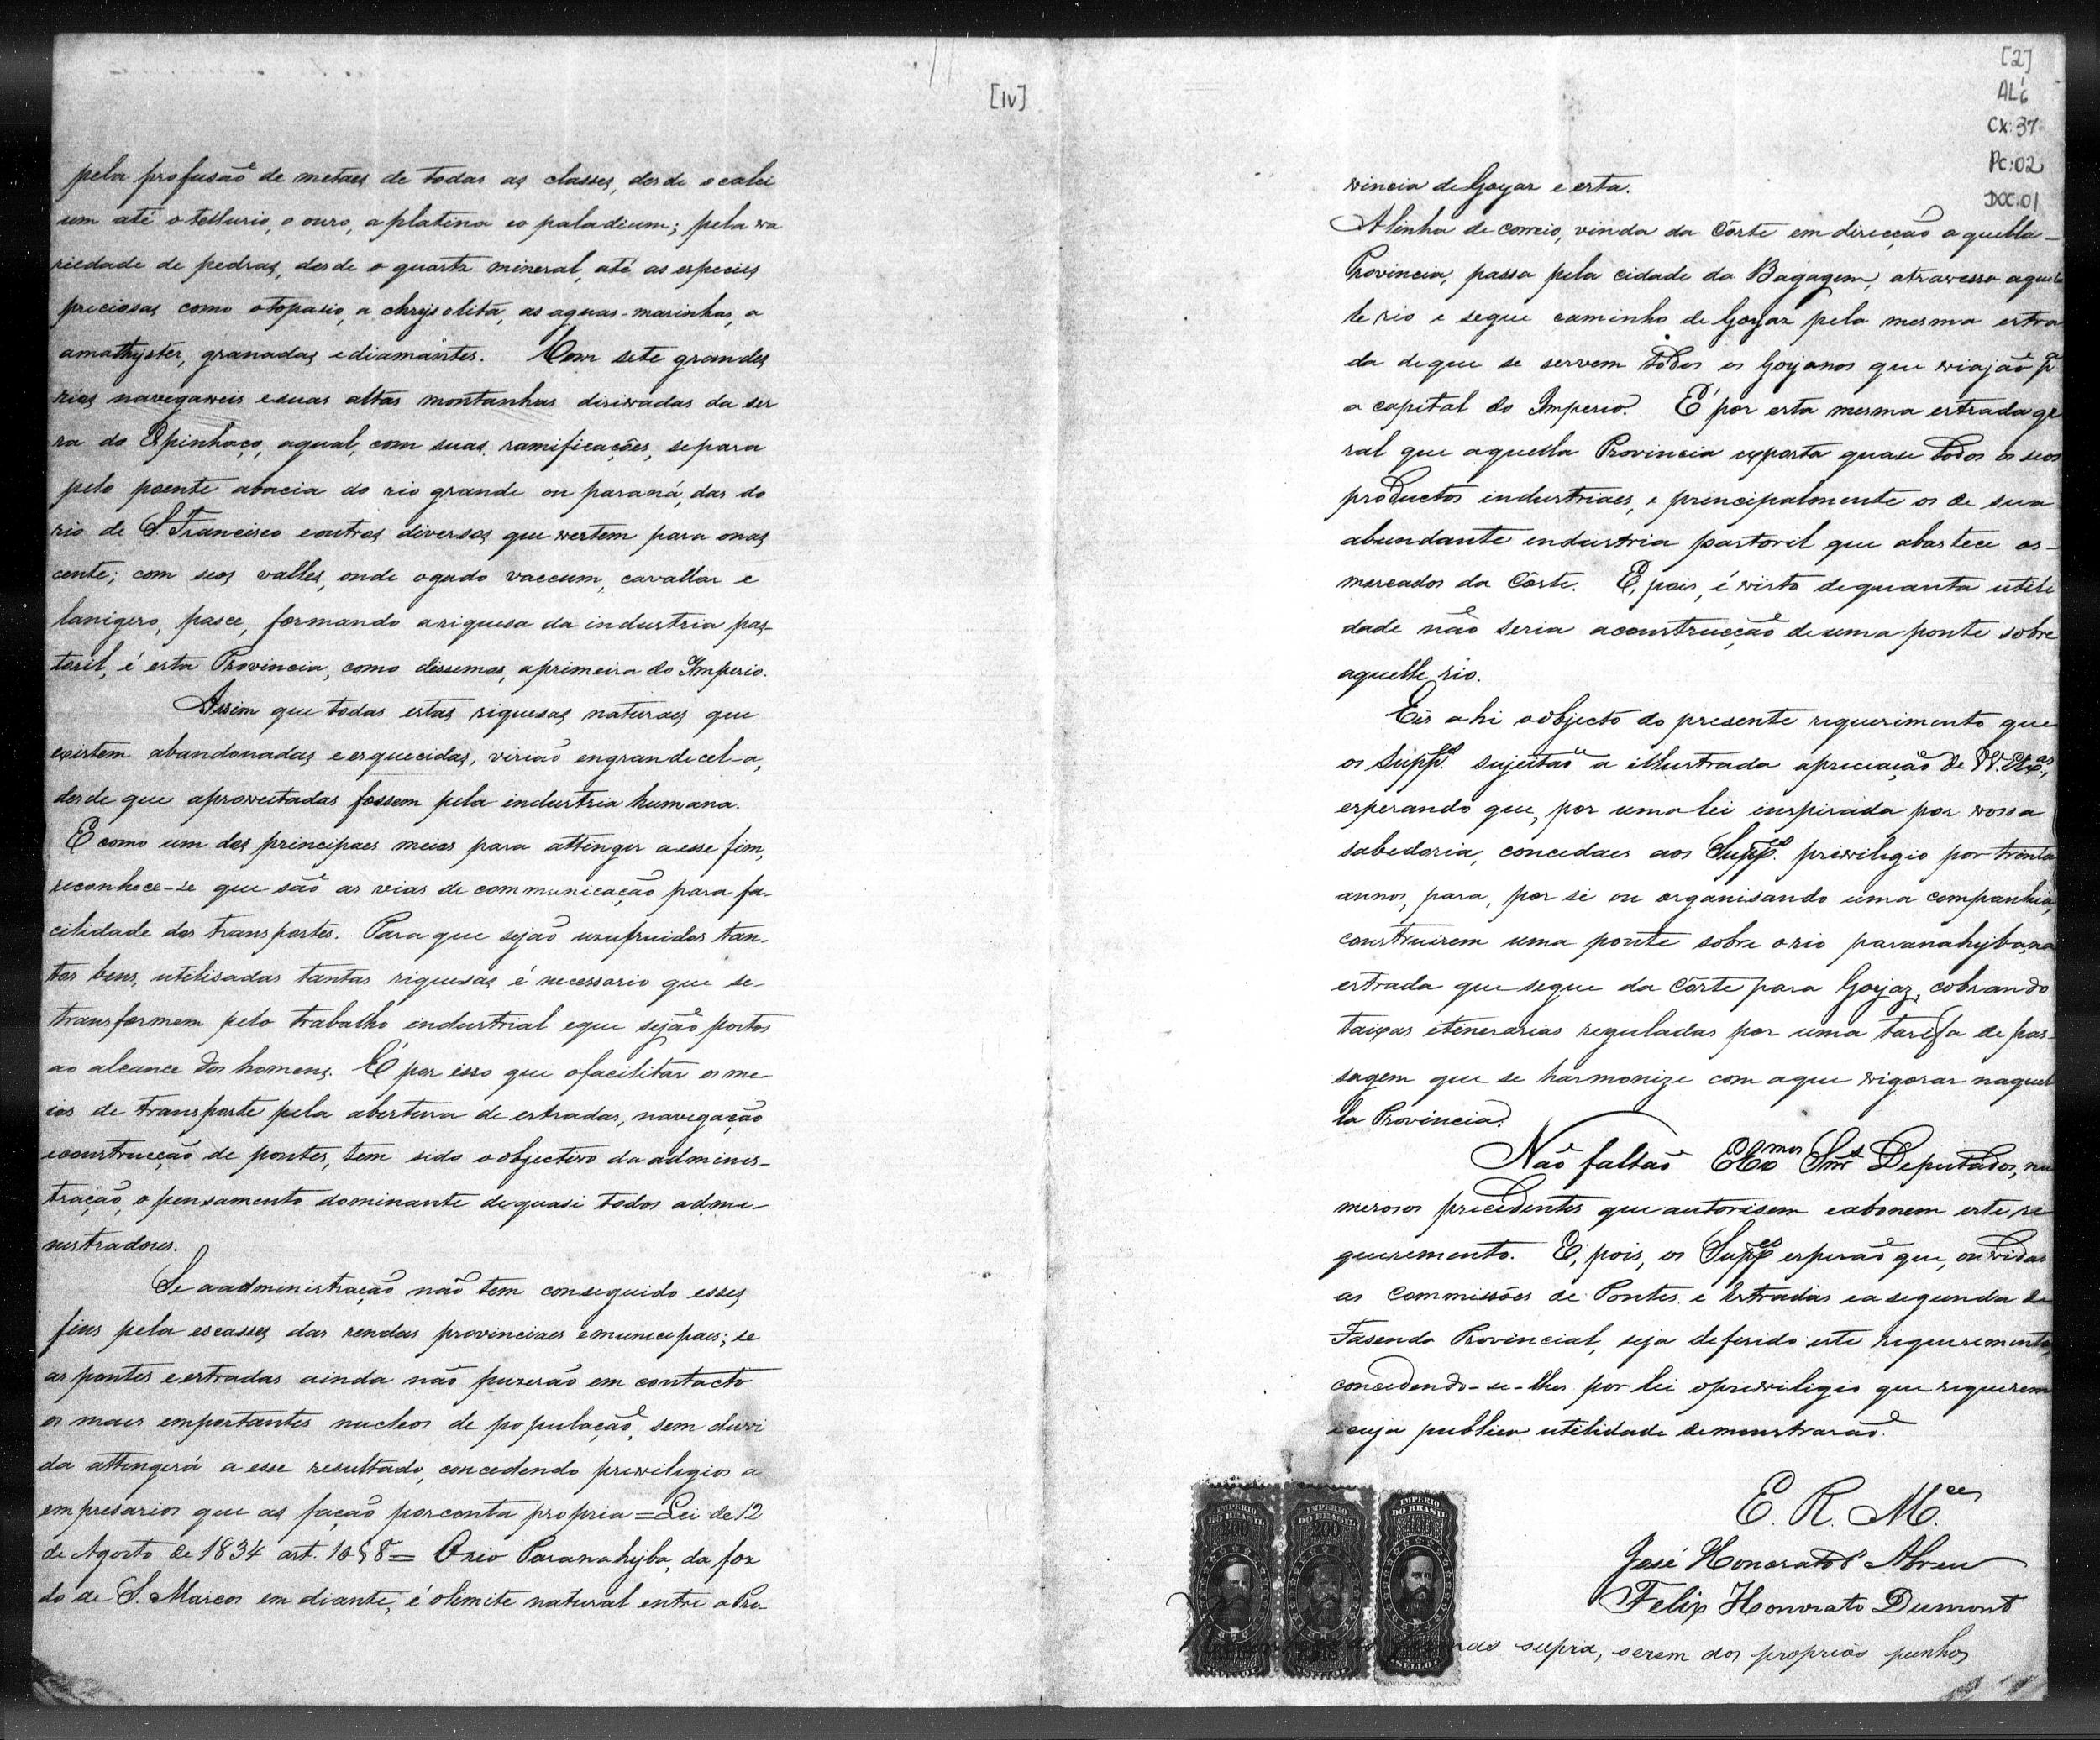 [1v]
pela profusaõ de metaes de todas as classes, desde o calci
um até o tellurio, o ouro, a platina e o paladium; pela va
riedade de pedras, desde o quartz mineral, até as especies
preciosas como o topasio, a chrysolita, as aguas-marinhas, a
amathyster, granadas e diamantes. Com sete grandes
rios navegaveis e suas altas montanhas dirivadas da ser
ra do Espinhaço, a qual, com suas ramificações, separa
pelo poente a bacia do rio grande ou paraná, das do
rio de S. Francisco e outros diversos que vertem para o nas
cente; com seos valles, onde o gado vaccum, cavallar e
lanigero, pasce, formando a riquesa da industria pas-
toril, é esta Provincia, como dissemos, a primeira do Imperio.
Assim que todas estas riquesas naturaes que
existem abandonadas e esquecidas, viriaõ engrandecel-a,
desde que aproveitadas fossem pela industria humana.
E como um dos principaes meios para attingir a esse fim,
reconhece-se que saõ as vias de communicação para fa-
cilidade dos transportes. Para que sejaõ usufruidos tan-
tos bens, utilisadas tantas riquesas é necessario que se-
transformem pelo trabalho industrial e que sejaõ postos
ao alcance dos homens. É por isso que o facilitar os me-
ios de transporte pela abertura de estradas, navegação
e construcção de pontes, tem sido o objectivo da adminis-
tração, o pensamento dominante de quasi todos admi-
nistradores.
Se a administração naõ tem conseguido esses
fins pela escasses das rendas provinciaes e municipaes; se
as pontes e estradas ainda naõ puzeraõ em contacto
os mais importantes nucleos de população, sem duvi
da attingerá a esse resultado, concedendo privilegios a
empresarios que as façaõ por conta propria = Lei de 12
de Agosto de 1834 art. 10 § 8 = O rio Paranahyba, da foz
do de S. Marcos em diante, é o limite natural entre a Pro-
[2]
AL6
CX:37
Pc:02
DOC:01
vincia de Goyaz e esta.
A linha de correio, vinda da Côrte em direcção a quella-
Provincia, passa pela cidade da Bagagem, atravessa aquel
le rio e segue caminho de Goyaz pela mesma estra
da de que se servem todos os Goyanos que viajaõ pª
a capital do Imperio. É por esta mesma estrada ge
ral que aquella Provincia exporta quase todos os seos
productos industriaes, e principalmente os de sua
abundante industria pastoril que abastece os-
mercados da Côrte. E, pois, é visto de quanta utili
dade naõ seria a construcção de uma ponte sobre
aquelle rio.
Eis a hi o objecto do presente requerimento que
os Suppes. sujeitaõ a illustrada apreciação de VV. Exas.,
esperando que, por uma lei inspirada por vossa
sabedoria, concedaes aos Suppes. privilegio por trinta
annos, para, por si ou organisando uma companhia,
construirem uma ponte sobre o rio paranahyba, na
estrada que segue da Côrte para Goyaz, cobrando
taixas itenerarias reguladas por uma tarifa de pas-
sagem que se harmonize com a que vigorar naquel
la Provincia.
Naõ faltaõ Exmos Snrs Deputados, nu
merosos precedentes que autorisem e abonem este re
querimento. E, pois, os Suppes esperaõ que, ouvidas
as Commissões de Pontes e Estradas e a segunda de
Fasenda Provincial, seja deferido este requerimento,
concedendo-se-lhes por lei o previligio que requerem
e cuja publica utilidade demonstraraõ.
E. R. Mces
José Honorato d'Abreu
Felix Honorato Dumont
IMPERIO DO BRASIL 200
IMPERIO DO BRASIL 200
IMPERIO DO BRASIL 200 SELLO
supra, serem dos proprios punhos